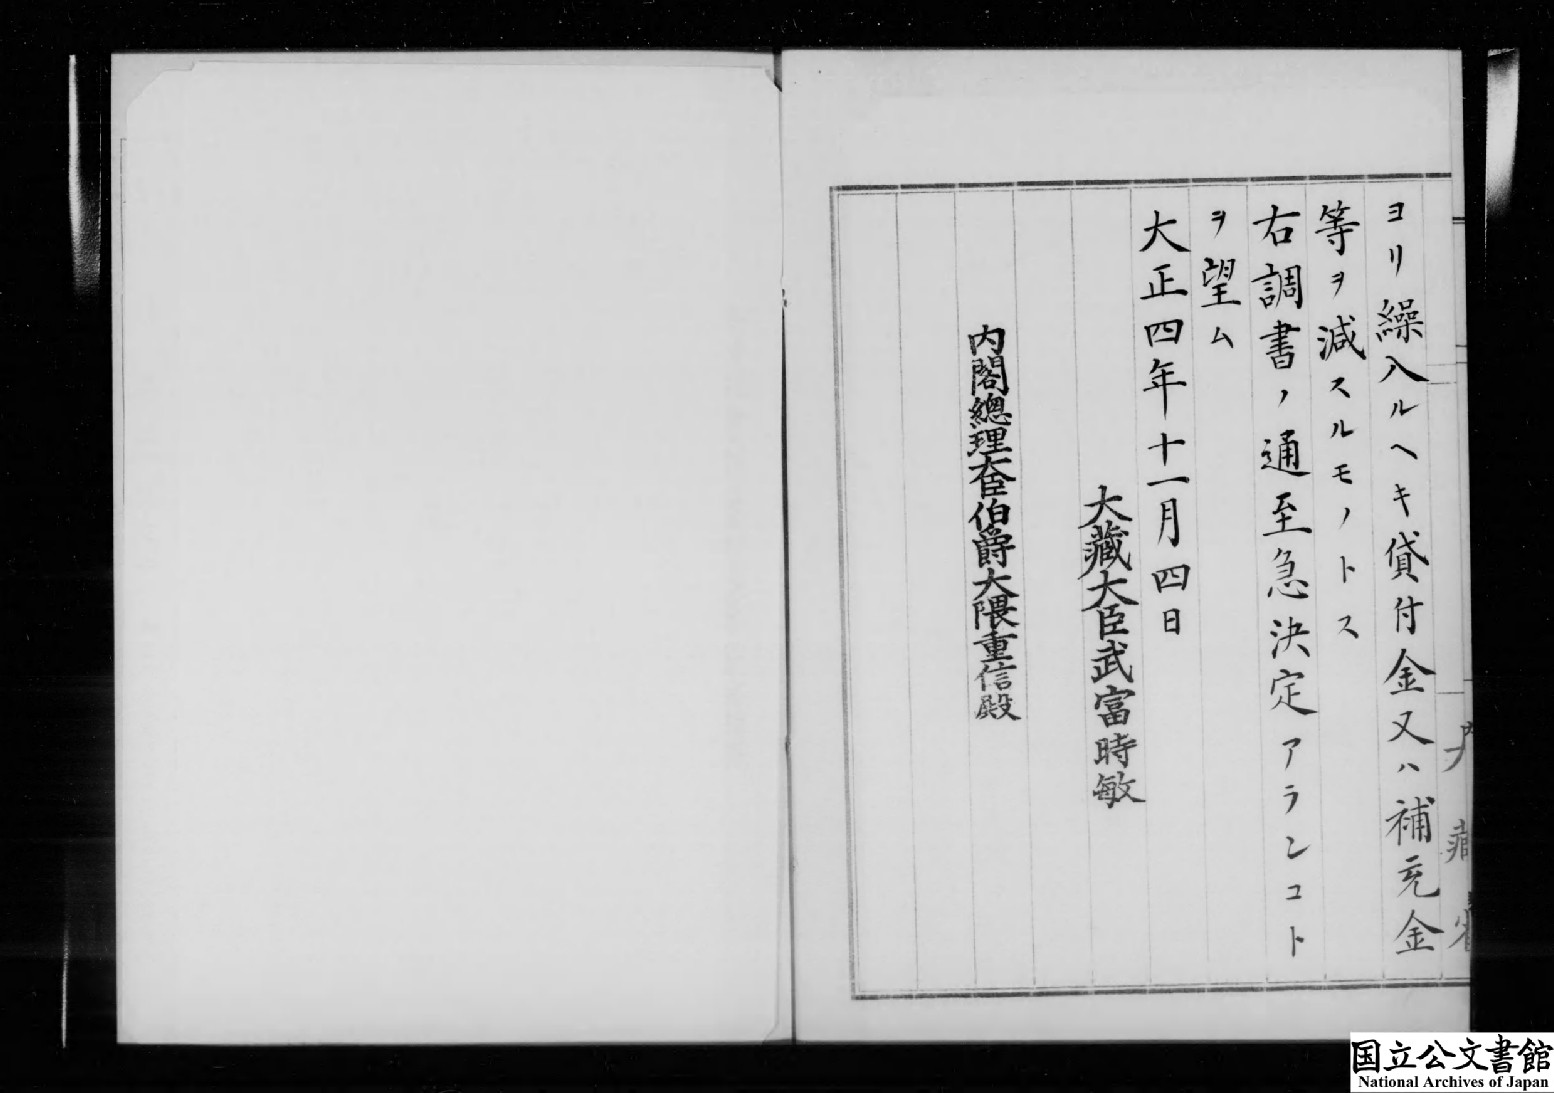 ヨリ繰入ルヘキ貸付金又ハ補充金
等ヲ減スルモノトス
右調書ノ通至急決定アランコト
ヲ望ム
大正四年十一月四日
大藏大臣武富時敏
内閣總理大臣伯爵大隈重信殿
大藏省
国立公文書館
National Archives of Japan